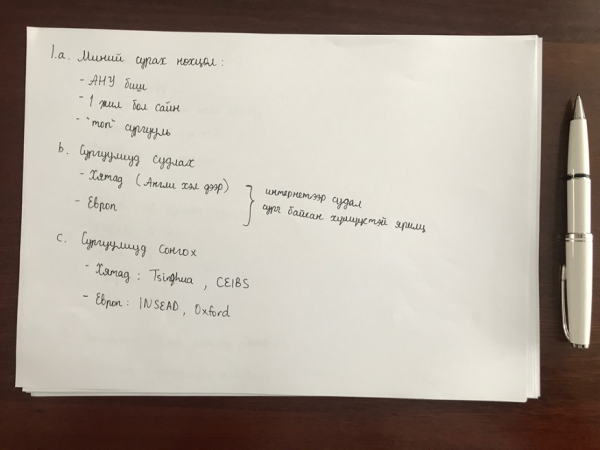 1.a. Миний сурах нөхцөл:
- АНУ биш
- 1 жил бол сайн
- "топ" сургууль
b. Сургуулиуд судлах
- Хятад (Англи хэл дээр)
- Европ
интернетээр судал
сурч байсан хүмүүстэй ярилц
c. Сургуулиуд сонгох
- Хятад: Tsinghua, CEIBS
- Европ: INSEAD, Oxford